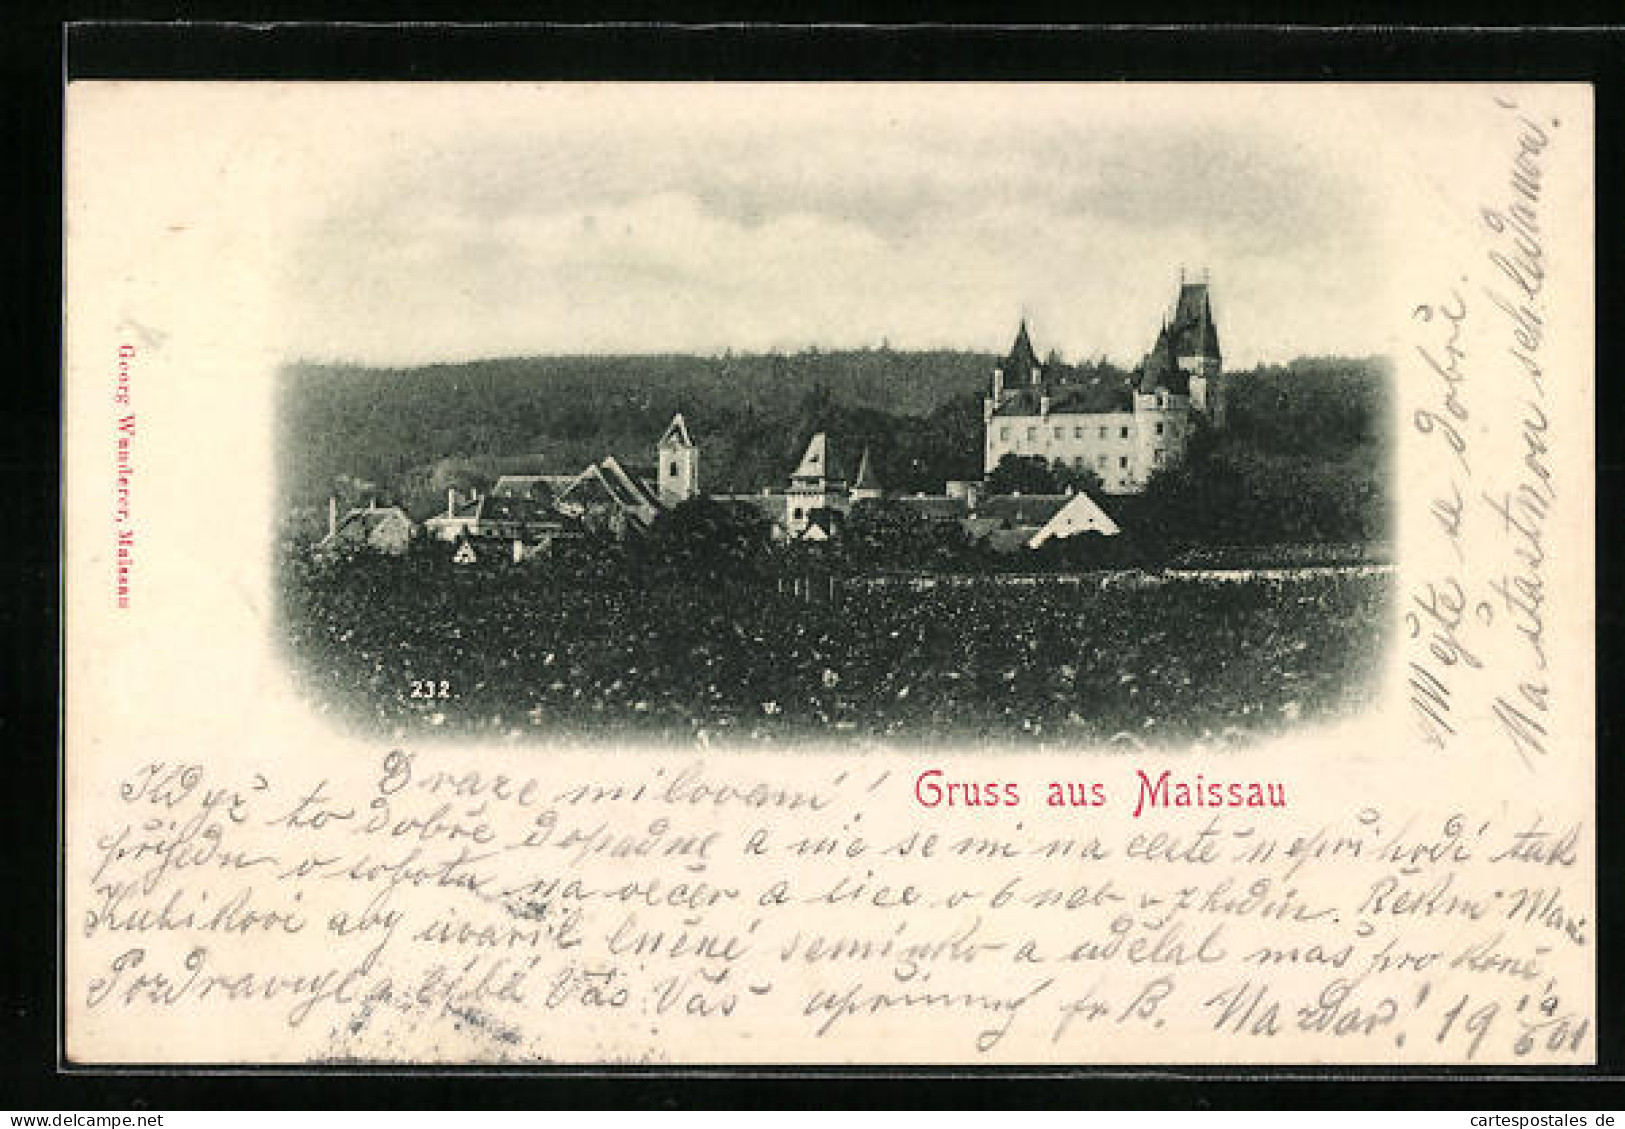 Georg Wunderer, Maissau
232.
Gruss aus Maissau
Draze milovaní!
Když to dobře dopadne a nic se mi na cestě nepřihodí tak
přijedu v sobotu na večer a sice v 6 neb v 7 hodin. Řekni Mani
Kubikovi aby uvařil lněné semínko a udělal maš pro koně.
Pozdravuji a líbá Vás Váš upřímný fr B. Nazdar! 19 / 6 01
Mějte se dobře.
Na štastnou shledanou.